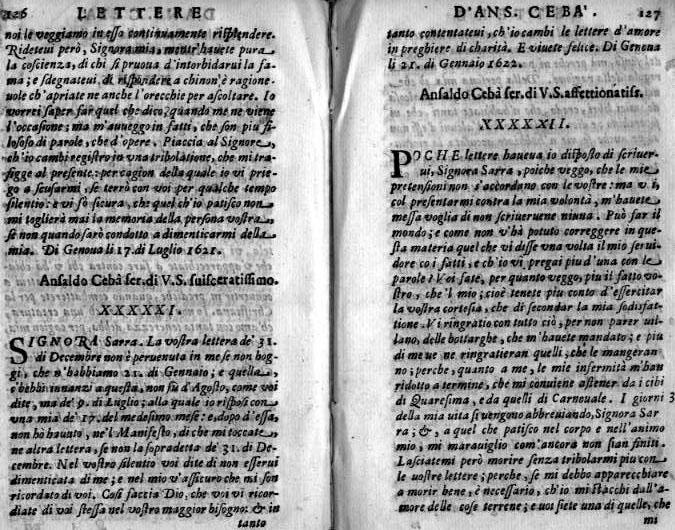 126 LETTERE
noi le veggiamo in essa continuamente risplendere.
Ridetevi però, Signora mia, mentr'hauete pura
la coscienza, di chi si pruoua d'intorbidarui la fa-
ma; e sdegnateui di rispondere a chi non'è ragione-
uole ch'apriate ne anche l'orecchie per ascoltare. Io
vorrei saper far quel che dico, quando me ne viene
l'occasione; ma m'auueggo in fatti, che son più fi-
losofo di parole, che d'opere. Piaccia al Signore,
ch'io cambi registro in vna tribolatione, che mi tra-
figge al presente: per cagion della quale io vi prie-
go a scusarmi, se terrò con voi per qualche tempo
silentio: e vi fò sicura, che quel ch'io patisco non
mi toglierà mai la memoria della persona vostra,
se non quando sarò condotto a dimenticarmi della
mia. Di Genoua li 17. di Luglio 1621.
Ansaldo Cebà ser. di V.S. suisceratissimo.
XXXXXI.
SIGNORA Sarra. La vostra lettera de' 31.
di Decembre non è peruenuta in me se non hog-
gi, che n'habbiamo 21. di Gennaio; e quella,
c'hebbi innanzi a questa, non fù d'Agosto, come voi
dite, ma de' 9. di Luglio; alla quale io risposi con
vna mia de' 17. del medesimo mese: e, dopo d'essa,
non hò hauuto, ne'l Manifesto, di che mi toccate,
ne altra lettera, se non la sopradetta de' 31. di De-
cembre. Nel vostro silentio voi dite di non esserui
dimenticata di me; e nel mio v'assicuro che mi son
ricordato di voi. Così faccia Dio, che voi vi ricor-
diate di voi stessa nel vostro maggior bisogno: & in
tanto
D'ANS. CEBA'. 127
tanto contentateui, ch'io cambi le lettere d'amore
in preghiere di charità. E viuete felice. Di Genoua
li 21. di Gennaio 1622.
Ansaldo Cebà ser. di V.S. affettionatiss.
XXXXXII.
POCHE lettere haueua io disposto di scriuer-
ui, Signora Sarra, poiche veggo, che le mie
pretensioni non s'accordano con le vostre: ma v. i,
col presentarmi contra la mia volontà, m'hauete
messa voglia di non scriueruene niuna. Può far il
mondo; e come non v'hà potuto correggere in que-
sta materia quel che vi disse vna volta il mio serui-
dore co i fatti, e ch'io vi pregai più d'vna con le
parole? Voi fate, per quanto veggo, più il fatto vo-
stro, che'l mio; cioè tenete più conto d'essercitar
la vostra cortesia, che di secondar la mia sodisfat-
tione. Vi ringratio con tutto ciò, per non parer vil-
lano, delle bottarghe, che m'hauete mandato; e più
di me ve ne ringratieran quelli, che le mangeran-
no; perche, quanto a me, le mie infermità m'han
ridotto a termine, che mi conuiene astener da i cibi
di Quaresima, e da quelli di Carnouale. I giorni
della mia vita si vengono abbreuiando, Signora Sar
ra; &, a quel che patisco nel corpo e nell'animo
mio, mi marauiglio com'ancora non sian finiti.
Lasciatemi però morire senza tribolarmi più con
le vostre lettere; perche, se mi debbo apparecchiare
a morir bene, è necessario, ch'io mi stacchi dall'a-
more delle cose terrene; e voi siete vna di quelle, che
mi